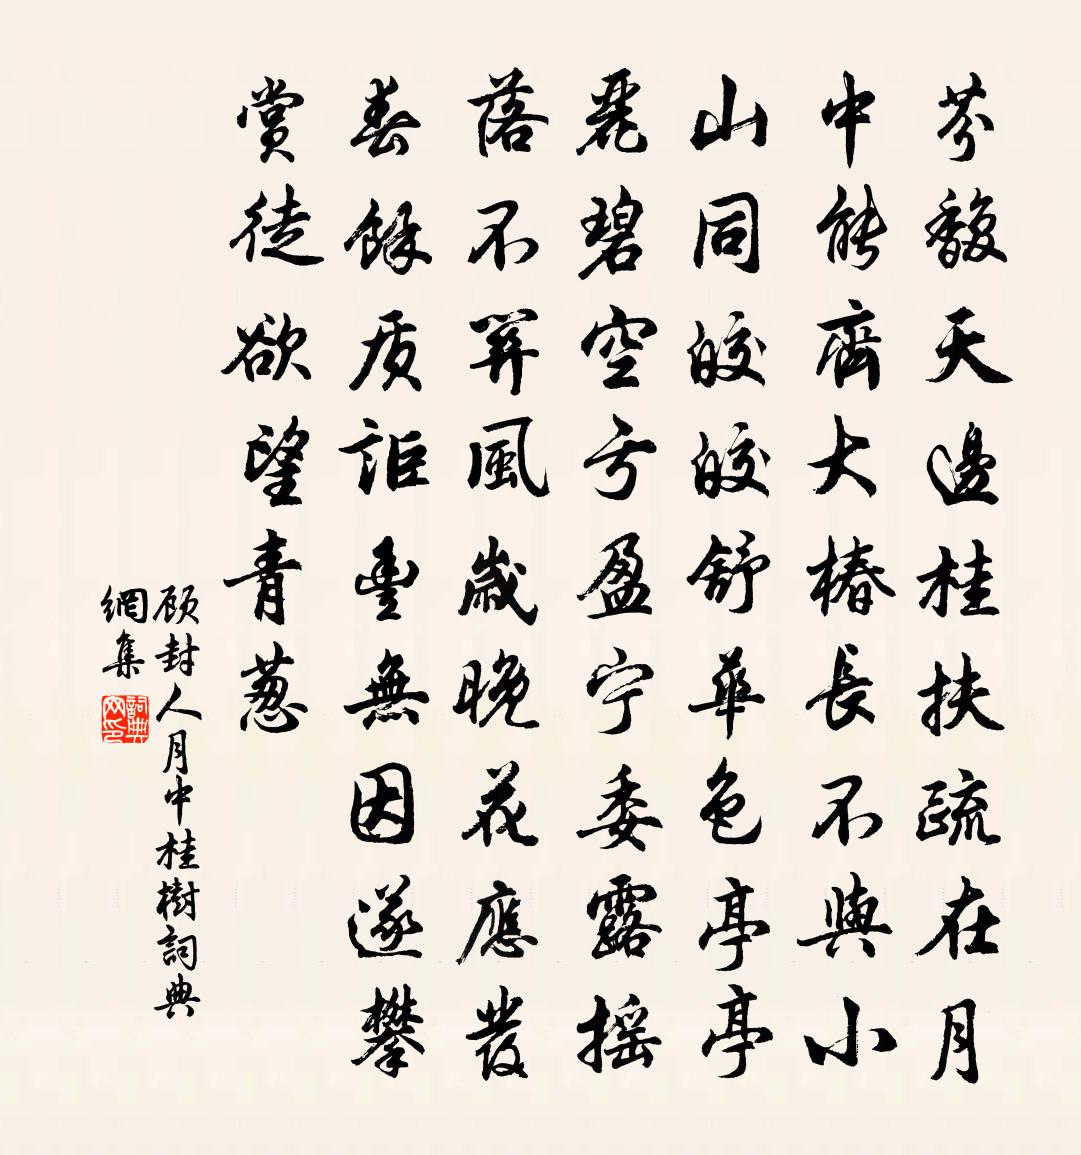 芬馥天邊桂扶疏在月
中能齊大椿長不與小
山同皎皎舒華色亭亭
麗碧空亏盈宁委露摇
落不關風歲晚花應發
春餘质詎豐無因遂攀
賞徒欲望青葱
顾封人月中桂樹詞典
網集
詞典网印